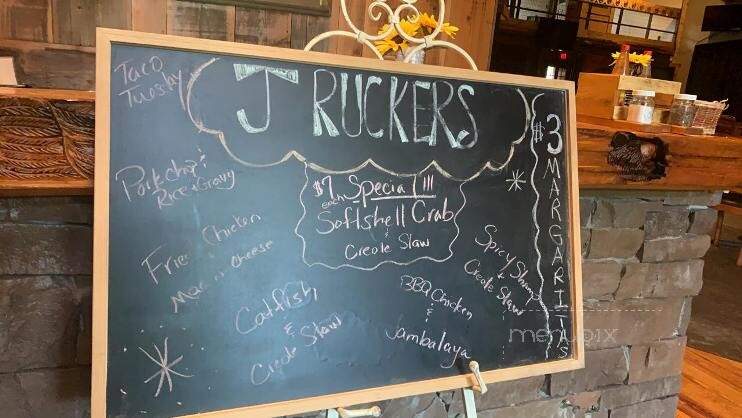 Taco
Tuesday
J RUCKERS
$7 Special!!!
each
Softshell Crab
&
Creole Slaw
Pork chop &
Rice + Gravy
Fried Chicken
&
Mac n Cheese
Catfish
&
Creole Slaw
BBQ Chicken
&
Jambalaya
Spicy Shrimp
&
Creole Slaw
$3
MARGARITAS
menupix